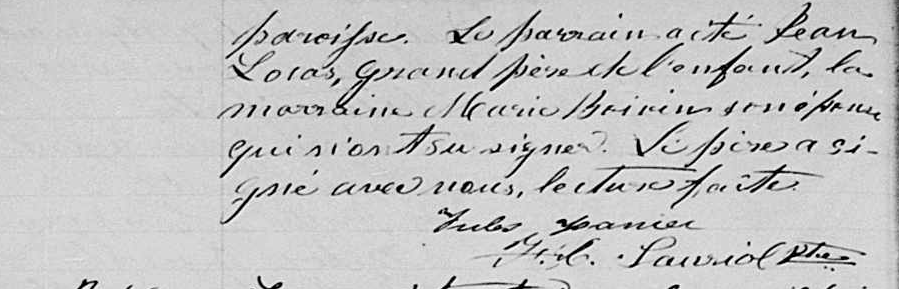 paroisse. Le parrain a été Jean
Locas, Grand père de l'enfant, la
marraine Marie Boivin son épouse
qui n'ont su signer. Le père a si-
gné avec nous, lecture faite.
Jules
F. C. Lauriol Ptre